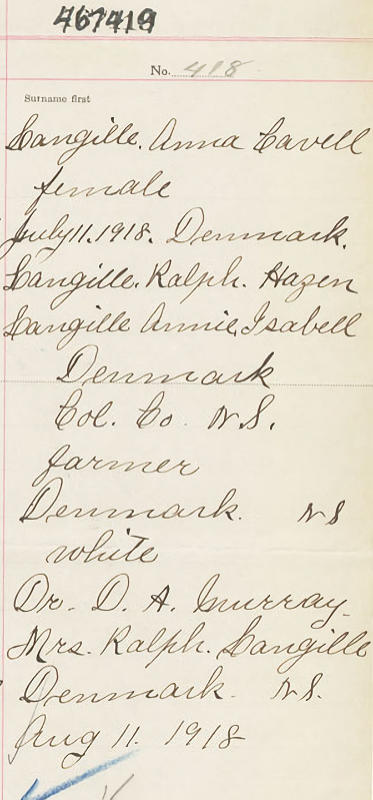 467419
No. 418
Surname first
Langille. Anna Cavell
female
July 11. 1918. Denmark.
Langille. Ralph. Hazen
Langille Annie. Isabell
Denmark
Col. Co. N.S.
farmer
Denmark. N S
white
Dr. D. A. Murray.
Mrs. Ralph. Langille
Denmark. N.S.
Aug 11. 1918